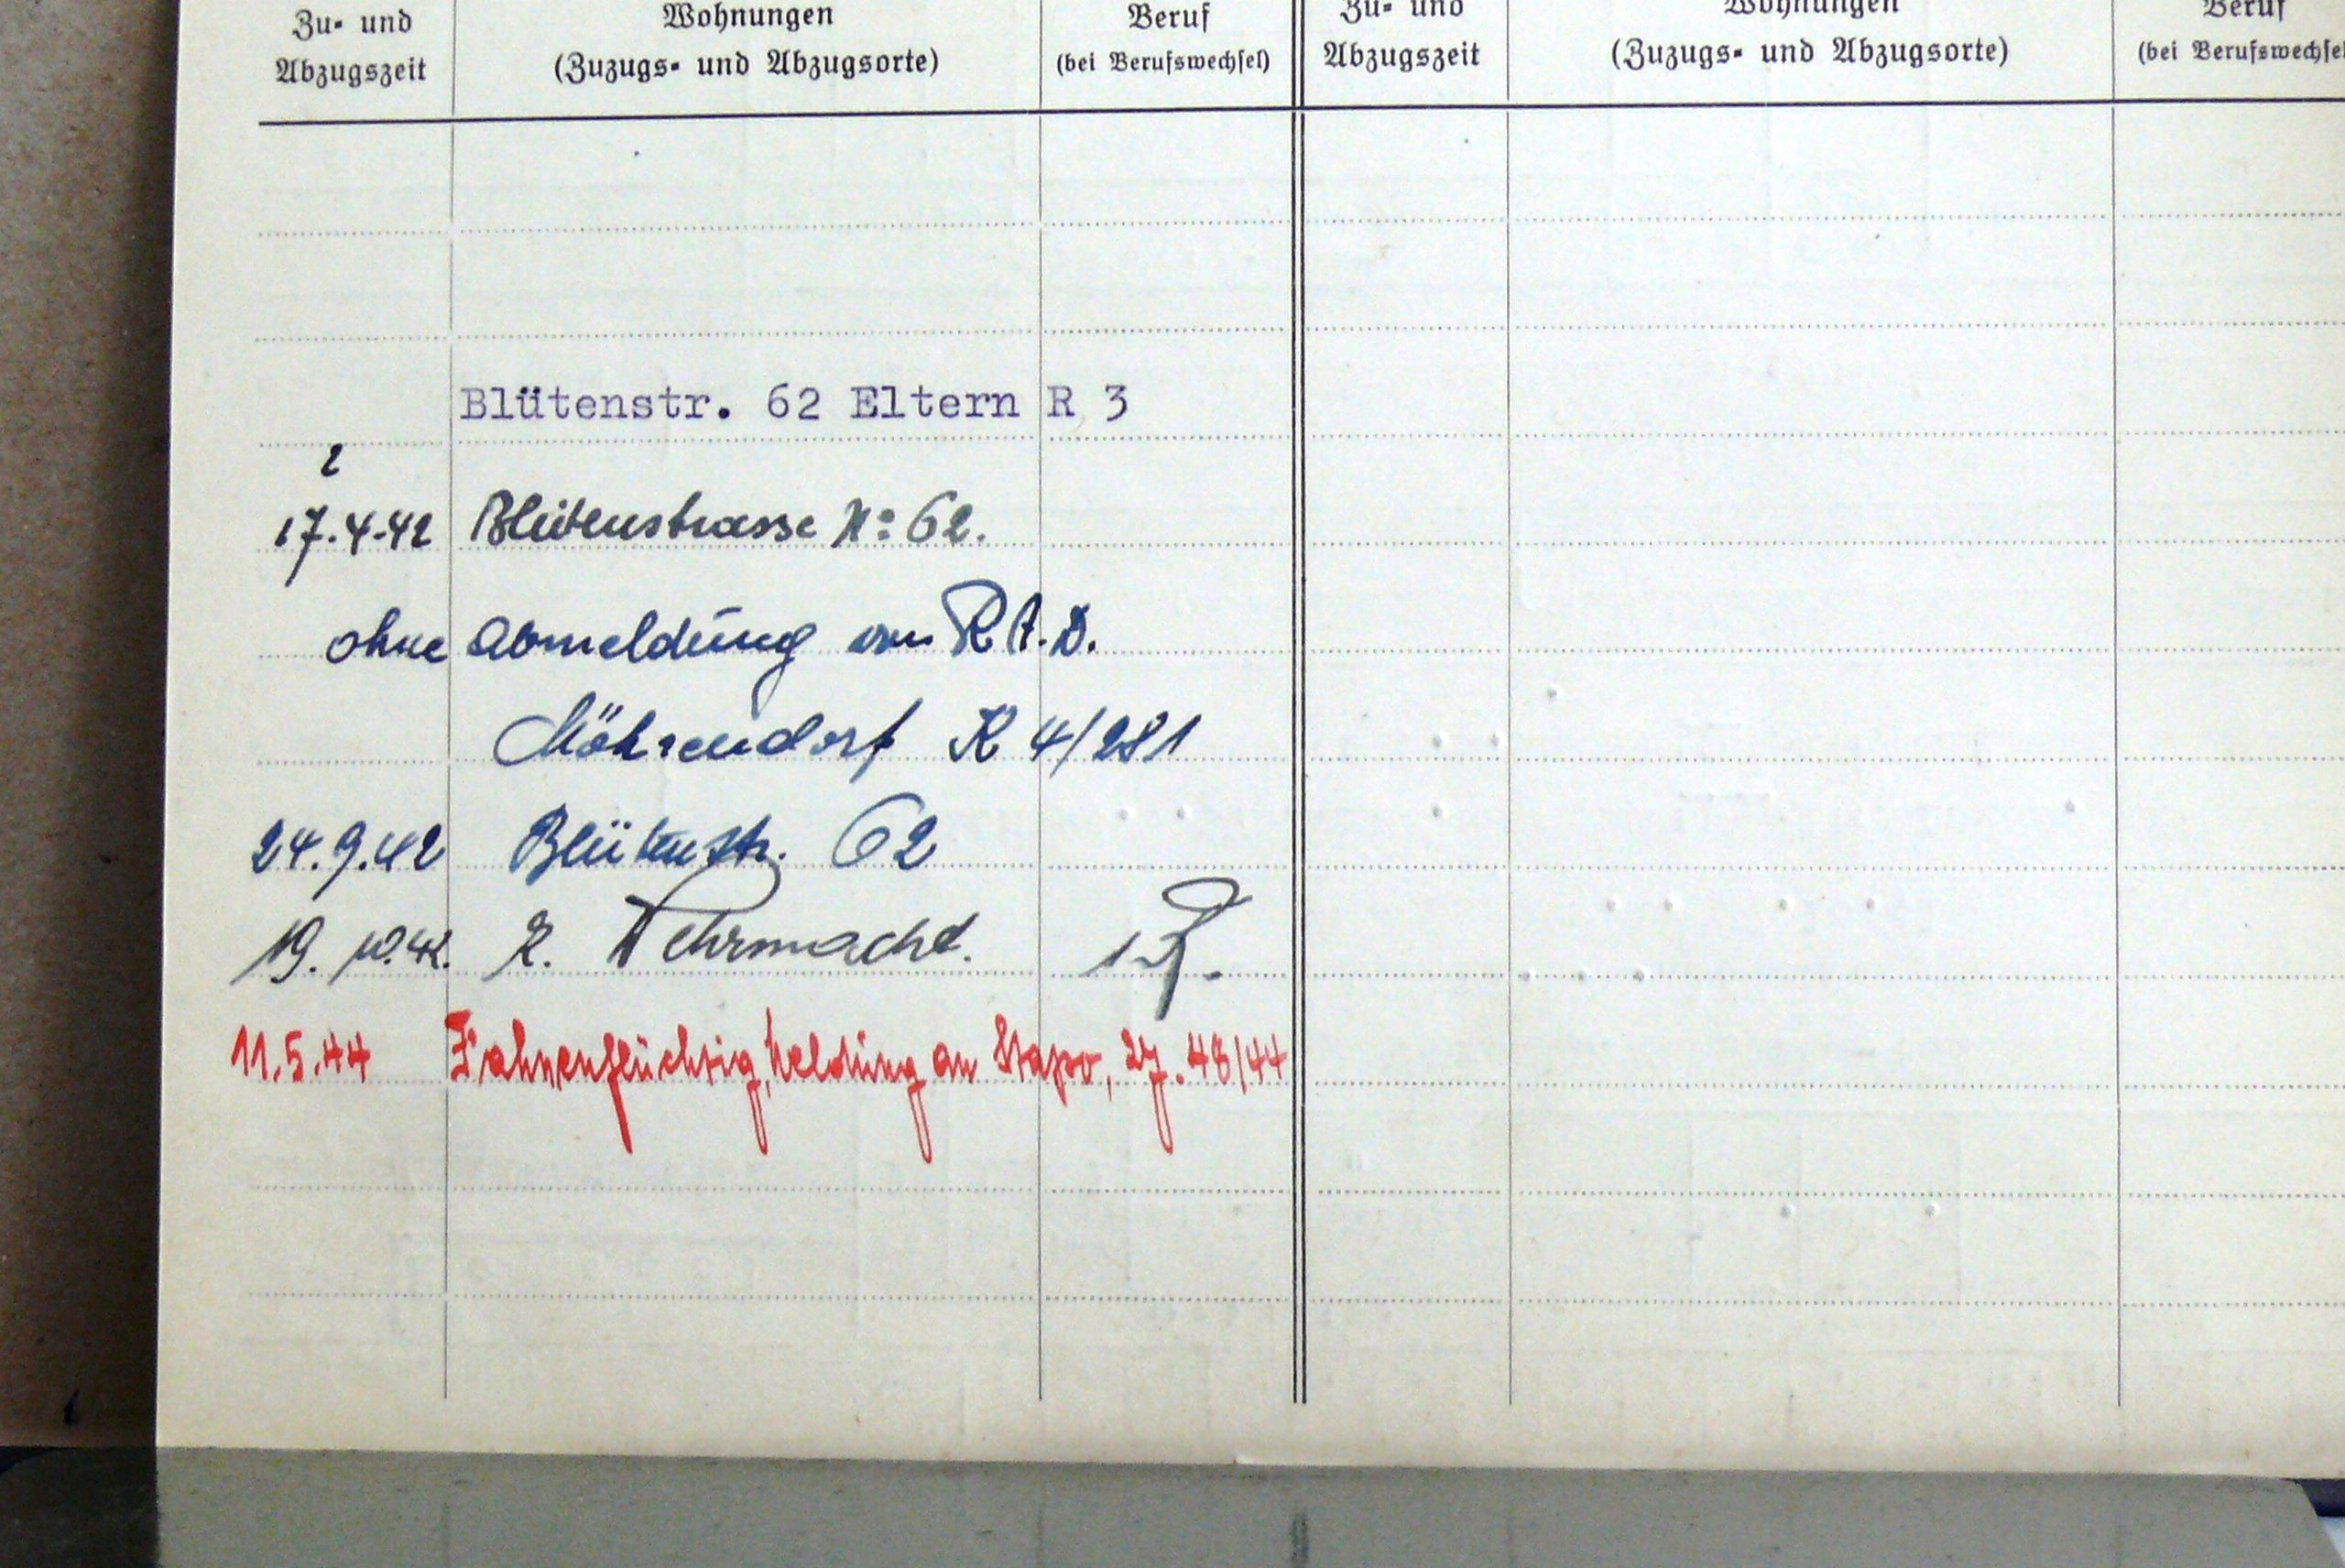 Zu- und Wohnungen Beruf Zu- und Wohnungen Beruf
Abzugszeit (Zuzugs- und Abzugsorte) (bei Berufswechsel) Abzugszeit (Zuzugs- und Abzugsorte) (bei Berufswechsel
Blütenstr. 62 Eltern R 3
17.4.42 Blütenstrasse N: 62.
ohne Abmeldung von R.A.D.
Möhrendorf K 4/281
24.9.42 Blütenstr. 62
19. 10.42. z. Wehrmacht.
11.5.44 Fahnenflüchtig, Meldung an Stapo, 27.48/44